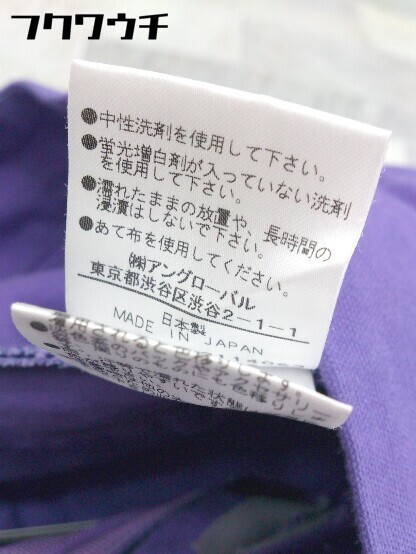 フクワウチ
●中性洗剤を使用して下さい。
●蛍光増白剤が入っていない洗剤
を使用して下さい。
●濡れたままの放置や、長時間の
浸漬はしないで下さい。
●あて布を使用してください。
㈱アングローバル
東京都渋谷区渋谷2-1-1
日本製
MADE IN JAPAN